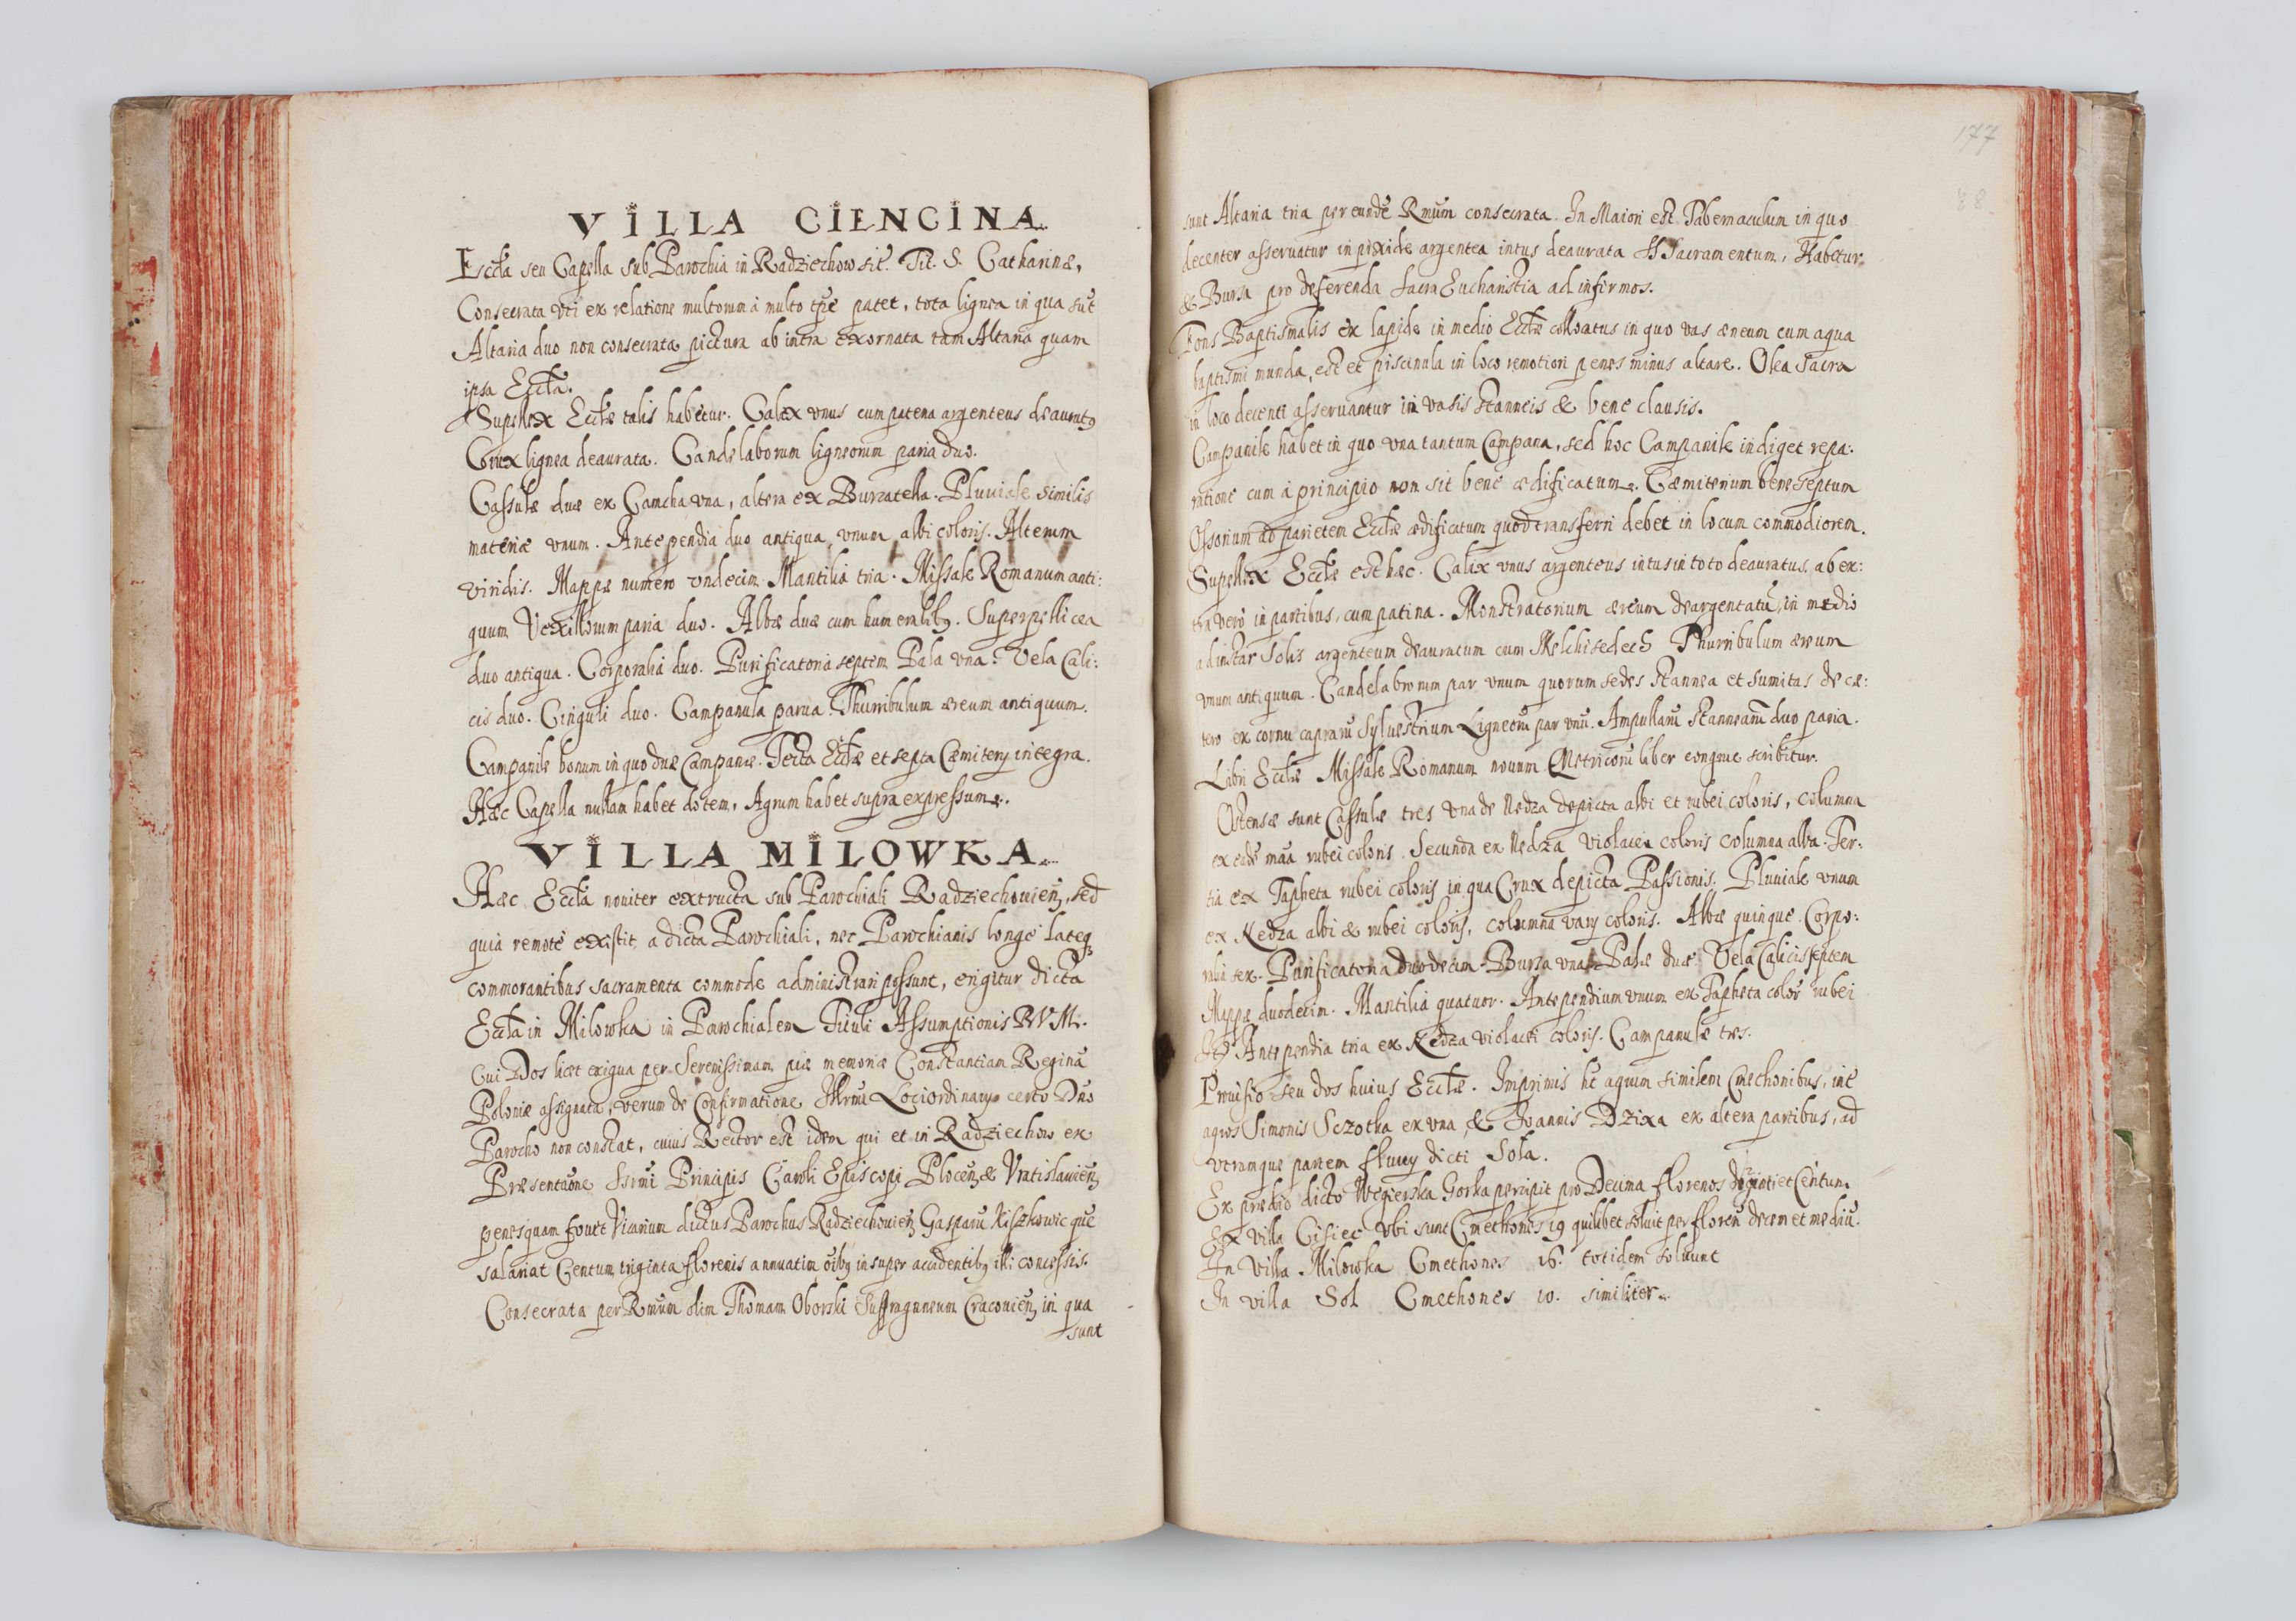 VILLA CIENCINA.
Eccła seu Capella sub Parochia in Radziechow sit. Tit. S. Catharinæ,
Consecrata vti ex relatione multorum à multo tp̃e patet, tota lignea in qua sūt
Altaria duo non consecrata pictura ab intra exornata tam Altaria quam
ipsa Eccła.
Supellex Eccłæ talis habetur. Calix vnus cum patena argenteus deauratꝰ
Crux lignea deaurata. Candelaborum ligneorum paria duo.
Cassulæ duæ ex Camcha vna, altera ex Burzatella. Pluuiale similis
materiæ vnum. Antependia duo antiqua, vnum albi coloris. Alterum
viridis. Mappæ numero vndecim. Mantilia tria. Missale Romanum anti:
quum Vexillorum paria duo. Albæ duæ cum humeralibꝰ. Superpellicea
duo antiqua. Corporalia duo. Purificatoria septem Pala vna. Vela Cali:
cis duo. Cinguli duo. Campanula parua. Thurribulum æreum antiquum.
Campanile bonum in quo duæ Campanæ. Tecta Eccłæ et septa Cæmiterij integra.
Hæc Capella nullam habet dotem, Agrum habet supra expressum.
VILLA MILOWKA.
Hæc Eccła nouiter extructa sub Parochiali Radziechouieñ, sed
quia remote existit a dicta Parochiali, nec Parochianis longè lateqꝫ
commorantibus sacramenta commode administrari possunt, erigitur dicta
Eccła in Milowka in Parochialem Tituli Assumptionis BVM.
Cui Dos licet exigua per Serenissimam piæ memoriæ Constantiam Reginā
Poloniæ assignata, verum de Confirmatione Illrmi Loci ordinarij certo Dño
Parocho non constat, cuius Rector est idem qui et in Radziechow ex
Præsentaõne Ssrmi Principis Caroli Episcopi Plocen̄ & Vratislauieñ,
penes quam fouet Vicarium dictus Parochus Radziechouieñ Gasparū Kiszkowic quē
salariat Centum triginta florenis annuatim oībꝰ insuper accidentibꝰ illi concessis.
Consecrata per Rmum olim Thomam Oborski Suffraganeum Cracouieñ, in qua
sunt
177
88
sunt Altaria tria per eundē Rmum consecrata. In Maiori est Tabernaculum in quo
decenter asseruatur in pixide argentea intus deaurata SSSacramentum, Habetur
& Bursa pro deferenda Sacra Eucharistia ad infirmos.
Fons Baptismalis ex lapide in medio Eccłæ collocatus in quo vas æneum cum aqua
baptismi munda, est et piscinula in loco remotiori penes minus altare. Olea Sacra
in loco decenti asseruantur in vasis stanneis & bene clausis.
Campanile habet in quo vna tantum Campana, sed hoc Campanile indiget repa:
ratione cum à principio non sit bene ædificatum. Cæmiterium bene septum
Ossorium ad parietem Eccłæ ædificatum quod transferri debet in locum commodiorem.
Supellex Eccłæ est hæc. Calix vnus argenteus intus in toto deauratus. ab ex:
tra verò in partibus, cum patina. Monstratorium æreum deargentatū, in medio
ad instar Solis argenteum deauratum cum Melchisedech Thurribulum æreum
vnum antiquum. Candelabrorum par vnum quorum sedes stannea et sumitas de cæ:
tero ex cornu caprarū syluestrium Ligneorū par vnū. Ampullarū stannearū duo paria.
Libri Eccłæ Missale Romanum nouum Metricorū liber congrue scribitur.
Ostensæ sunt Cassulæ tres vna de Nedza depicta albi et rubei coloris, columna
ex eadē mãa rubei coloris. Secunda ex Nedza violacei coloris columna alba. Ter:
tia ex Tapheta rubei coloris in qua Crux depicta Passionis. Pluuiale vnum
ex Nedza albi & rubei coloris, columna varij coloris. Albæ quinque. Corpo:
ralia sex. Purificatoria duodecim. Bursa vna. Palæ duæ. Vela Calicis septem
Mappæ duodecim. Mantilia quatuor. Antependium vnum ex Tapheta color rubei
Antependia tria ex Nedza violacei coloris. Campanulæ tres.
Prouisio seu dos huius Eccłæ. Imprimis hēt agrum similem Cmethonibus, int̄
agros Simonis Sczotka ex vna, & Joannis Dzixa ex altera partibus, ad
vtramque partem fluuij dicti Sola.
Ex prædio dicto Wegierska Gorka percipit pro Decima florenos Viginti et Centum.
Ex villa Cisiec vbi sunt Cmethones 19 quilibet soluit per floreñ decem et mediū.
In villa Milowka Cmethones 16. totidem soluunt
In villa Sol Cmethones 10. similiter.